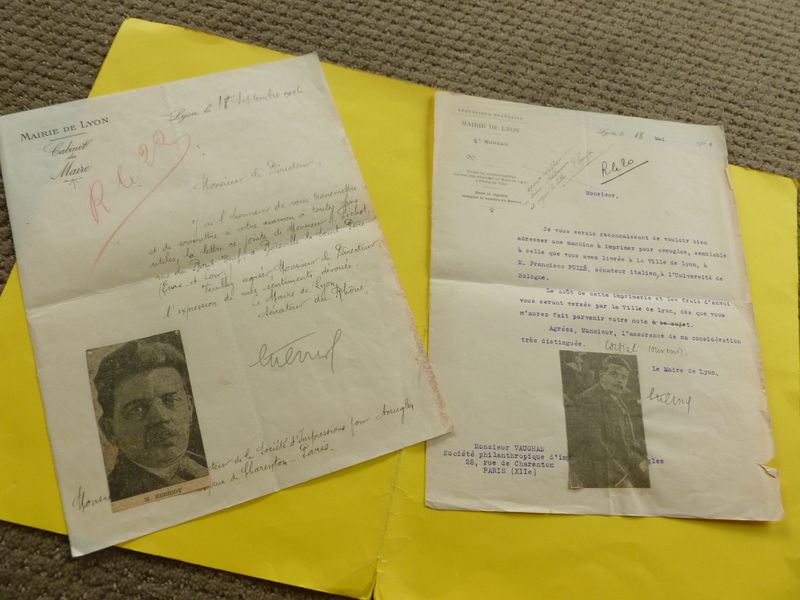 MAIRIE DE LYON
Cabinet
du
Maire
Lyon, le 18 Septembre
R le 20
Monsieur le Directeur,
J'ai l'honneur de vous transmettre
et de soumettre à votre examen, à toutes fins
utiles, la lettre ci-jointe de Monsieur
rue du Pont
(Eure et Loir)
Veuillez agréer Monsieur le Directeur,
l'expression de mes sentiments dévoués.
Le Maire de Lyon,
Sénateur du Rhône,
Herriot
M. HERRIOT
de la Société d'Impressions pour Aveugles
rue de Charenton. Paris
RÉPUBLIQUE FRANÇAISE
MAIRIE DE LYON
BUREAU
Lyon, le 18 Mai
R le 20
Monsieur,
Je vous serais reconnaissant de vouloir bien
adresser une machine à imprimer pour aveugles, semblable
à celle que vous avez livrée à la Ville de Lyon, à
M. Francisco sénateur italien, à l'Université de
Bologne.
Le coût de cette imprimerie et les frais d'envoi
vous seront versés par la Ville de Lyon, dès que vous
m'aurez fait parvenir votre note à ce sujet.
Agréez, Monsieur, l'assurance de ma considération
très distinguée. Cordial souvenir.
Le Maire de Lyon,
Herriot
Monsieur VAUGHAN
Société philantropique d'im
gles
28, rue de Charenton
PARIS (XIIe)